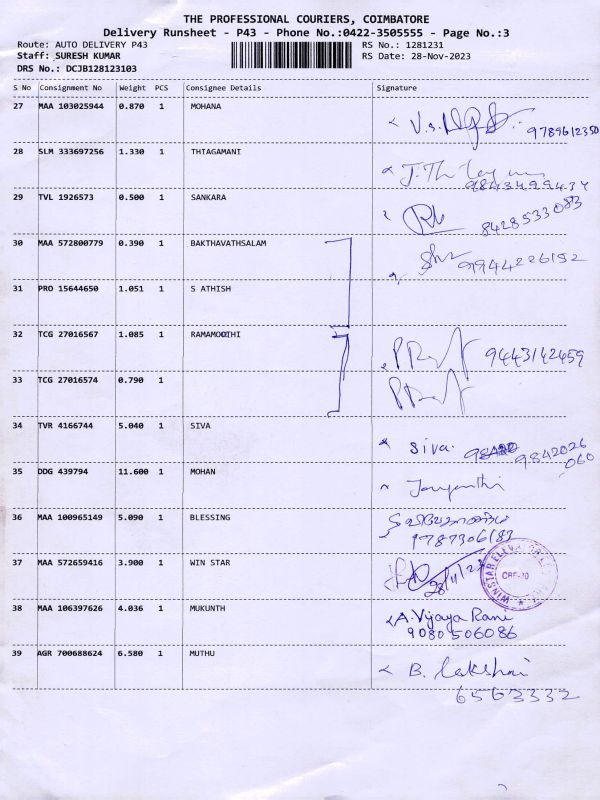 THE PROFESSIONAL COURIERS, COIMBATORE
Delivery Runsheet - P43 - Phone No.:0422-3505555 - Page No.:3
Route: AUTO DELIVERY P43 RS No.: 1281231
Staff: SURESH KUMAR RS Date: 28-Nov-2023
DRS No.: DCJB128123103
S No Consignment No Weight PCS Consignee Details Signature
27 MAA 103025944 0.870 1 MOHANA
9789612350
28 SLM 333697256 1.330 1 THIAGAMANI
29 TVL 1926573 0.500 1 SANKARA
8428533083
30 MAA 572800779 0.390 1 BAKTHAVATHSALAM
9944226152
31 PRO 15644650 1.051 1 S ATHISH
32 TCG 27016567 1.085 1 RAMAMOOTHI
9443142459
33 TCG 27016574 0.790 1
34 TVR 4166744 5.040 1 SIVA
Siva. 9842026
060
35 DDG 439794 11.600 1 MOHAN
Jayanthi
36 MAA 100965149 5.090 1 BLESSING
9787306183
37 MAA 572659416 3.900 1 WIN STAR
28/11/23
38 MAA 106397626 4.036 1 MUKUNTH
A. Vijaya Rani
9080506086
39 AGR 700688624 6.580 1 MUTHU
B. Lakshmi
6563332